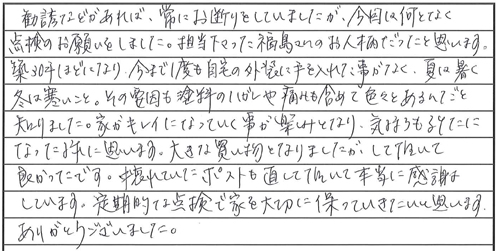 勧誘などがあれば、常にお断りをしていましたが、今回は何となく
点検のお願いをしました。担当下さった福島さんのお人柄だったと思います。
築30年ほどになり、今まで1度も自宅の外装に手を入れた事がなく、夏は暑く
冬は寒いこと。その要因も塗料のはがれや痛みも含めて色々とあるんだと
知りました。家がキレイになっていく事が楽しみとなり、気持ちも新たに
なった様に思います。大きな買い物となりましたが、して頂いて
良かったです。壊れていたポストも直して頂いて本当に感謝
しています。定期的な点検で家を大切に保っていきたいと思います。
ありがとうございました。